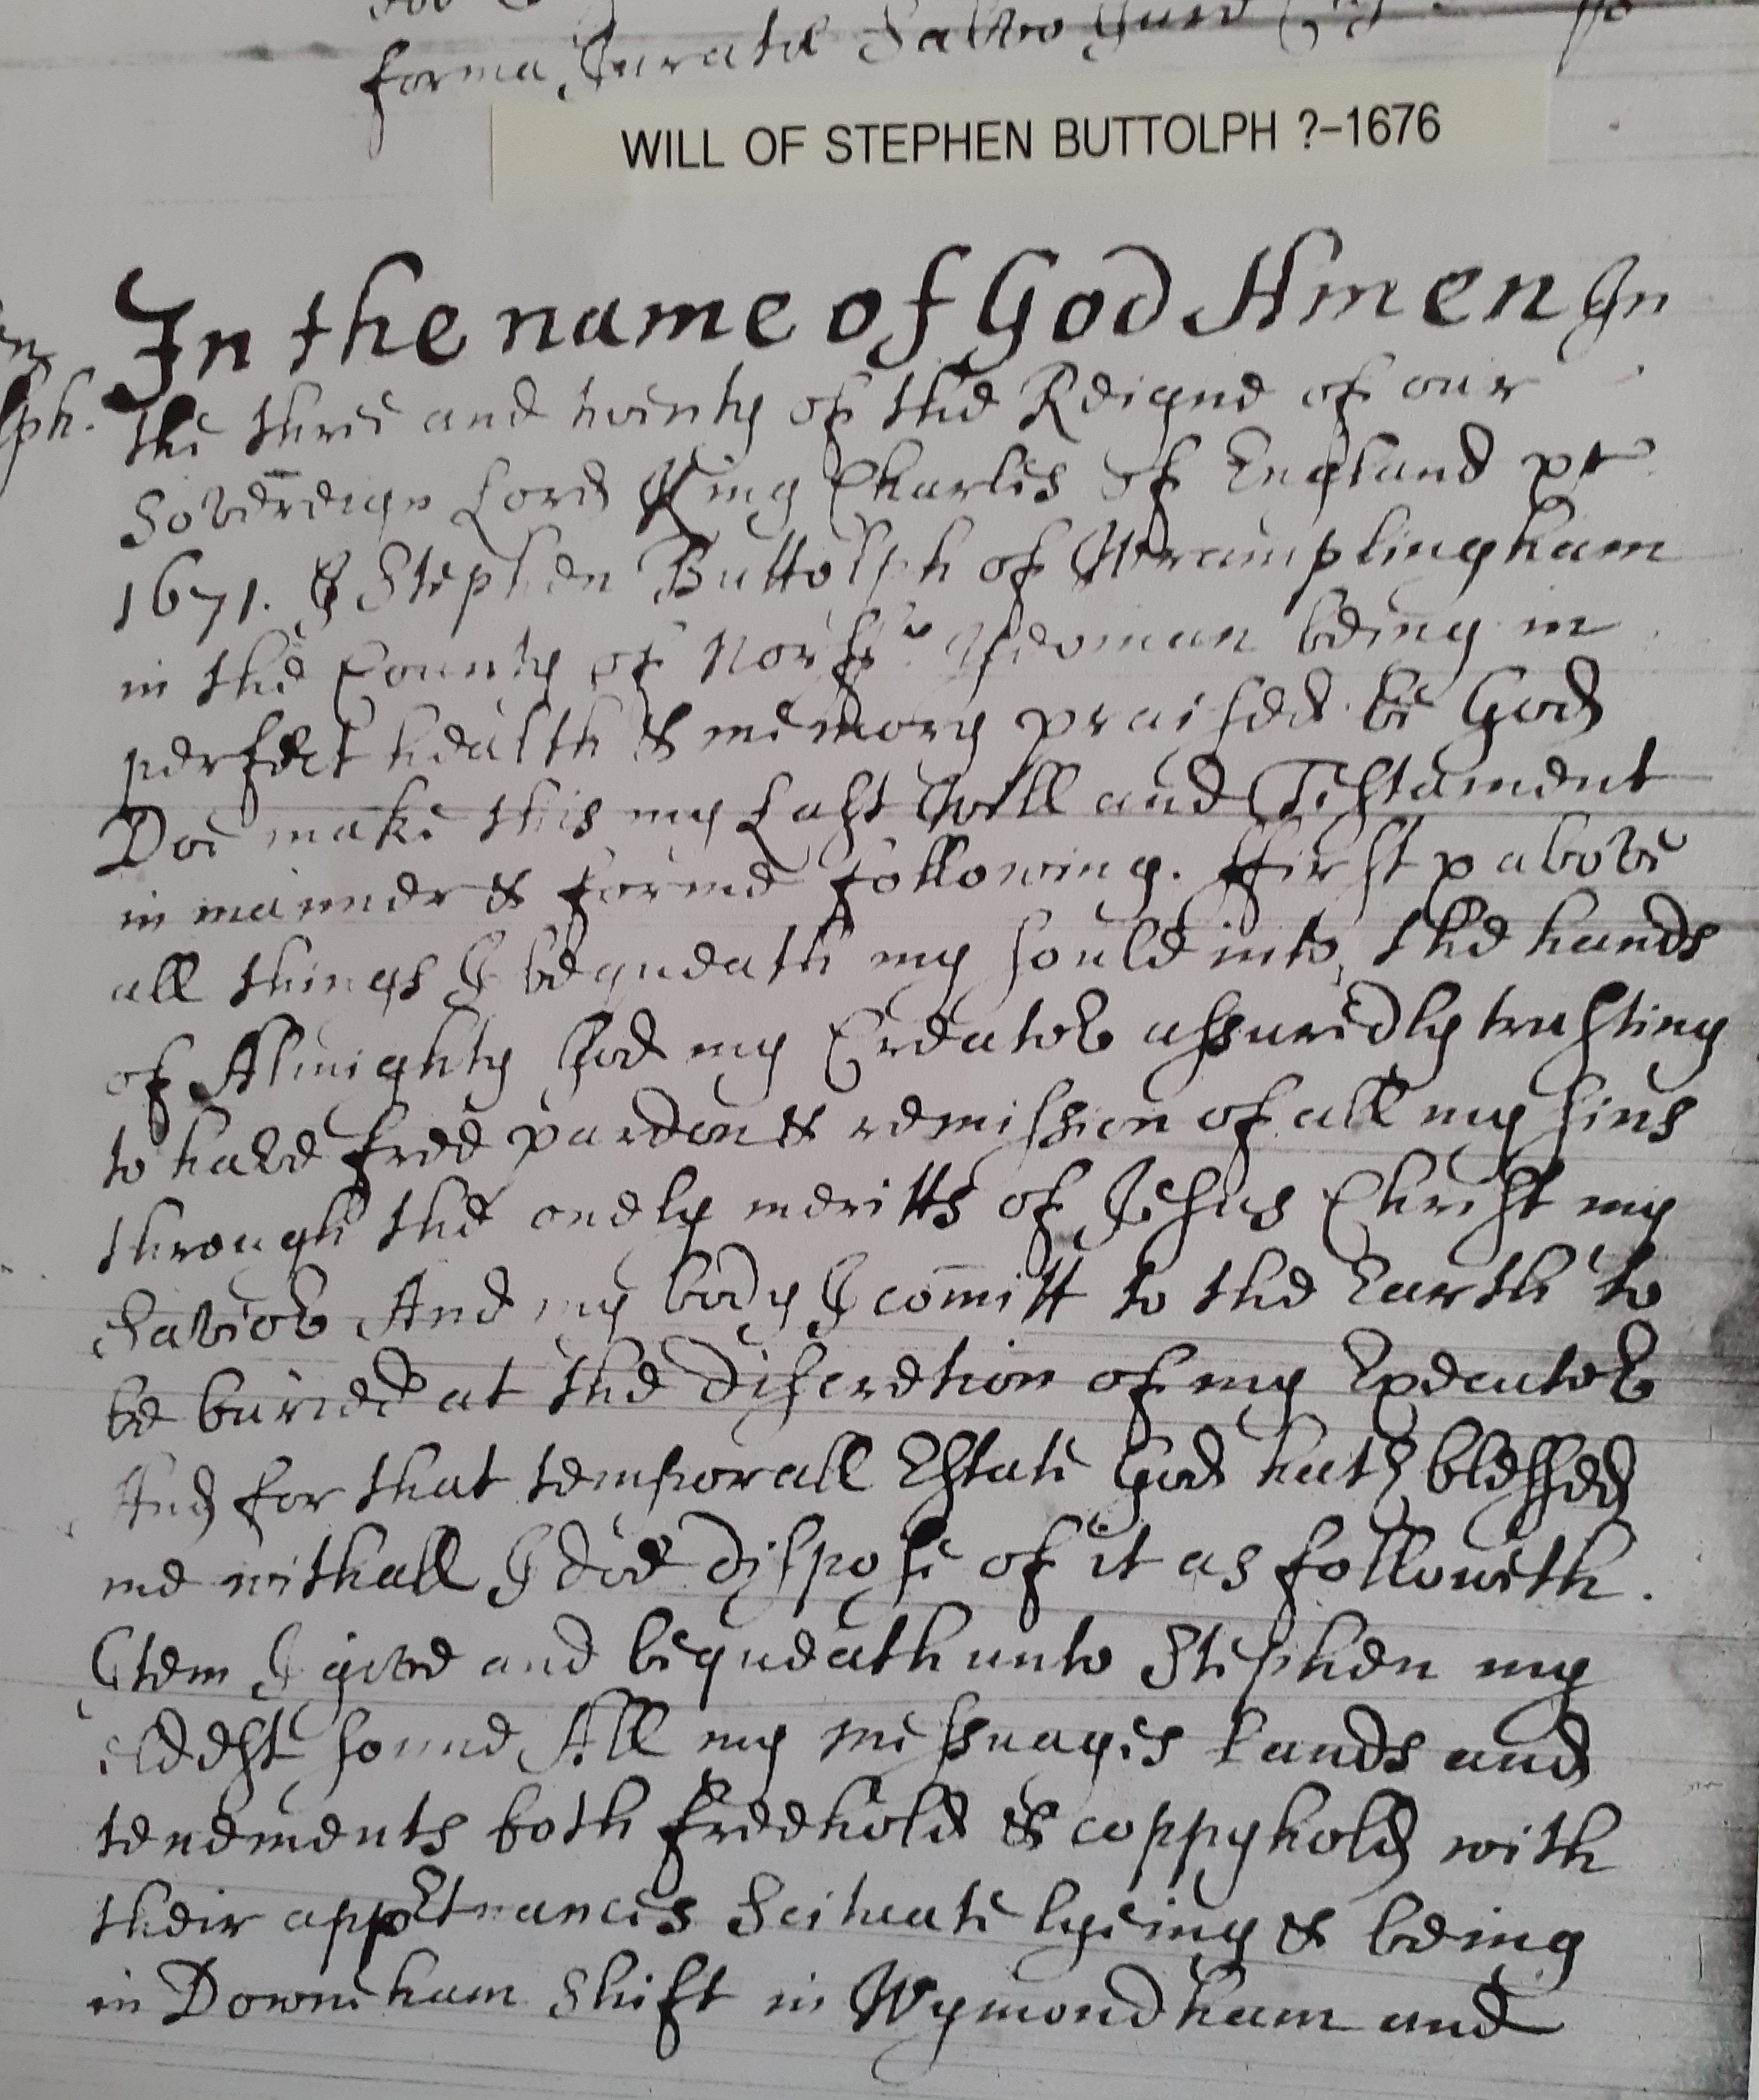 forma Jurat Salvo Jure
WILL OF STEPHEN BUTTOLPH ?–1676
In the name of God Amen In
lph. the three and twenty of the Reigne of our
Sovereign Lord King Charles of England
1671. I Stephen Buttolph of Wramplingham
in the County of Norff Yeoman being in
perfect health & memory praised be God
Doe make this my Last Will and Testament
in manner & forme following. ffirst above
all things I bequeath my soule into the hands
of Almighty God my Creator assuredly trusting
to have free pardon & remission of all my sins
through the onely meritts of Jesus Christ my
Savior And my body I comitt to the Earth to
be buried at the discretion of my Executor
And for that temporall Estate God hath blessed
me withall I doe dispose of it as followeth.
Item I give and bequeath unto Stephen my
eldest sonne All my messuages Lands and
tenements both freehold & coppyhold with
their apptenances Scituate lyeing & being
in Downeham Shift in Wymondham and